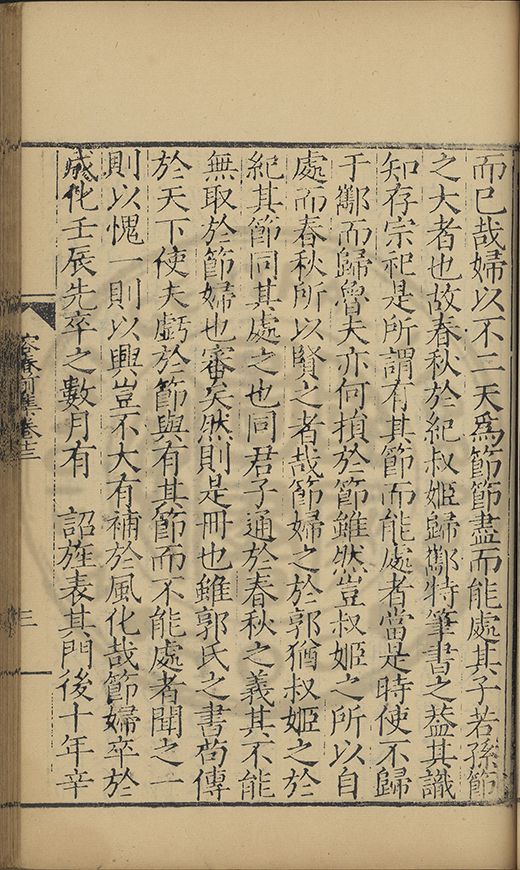 而已哉婦以不二天爲節節盡而能處其子若孫節
之大者也故春秋於紀叔姬歸酅特筆書之葢其識
知存宗祀是所謂有其節而能處者當是時使不歸
于酅而歸魯夫亦何損於節雖然豈叔姬之所以自
處而春秋所以賢之者哉節婦之於郭猶叔姬之於
紀其節同其處之也同君子通於春秋之義其不能
無取於節婦也審矣然則是冊也雖郭氏之書苟傳
於天下使夫虧於節與有其節而不能處者聞之一
則以愧一則以興豈不大有補於風化哉節婦卒於
成化壬辰先卒之數月有 詔旌表其門後十年辛
前集卷十三
三